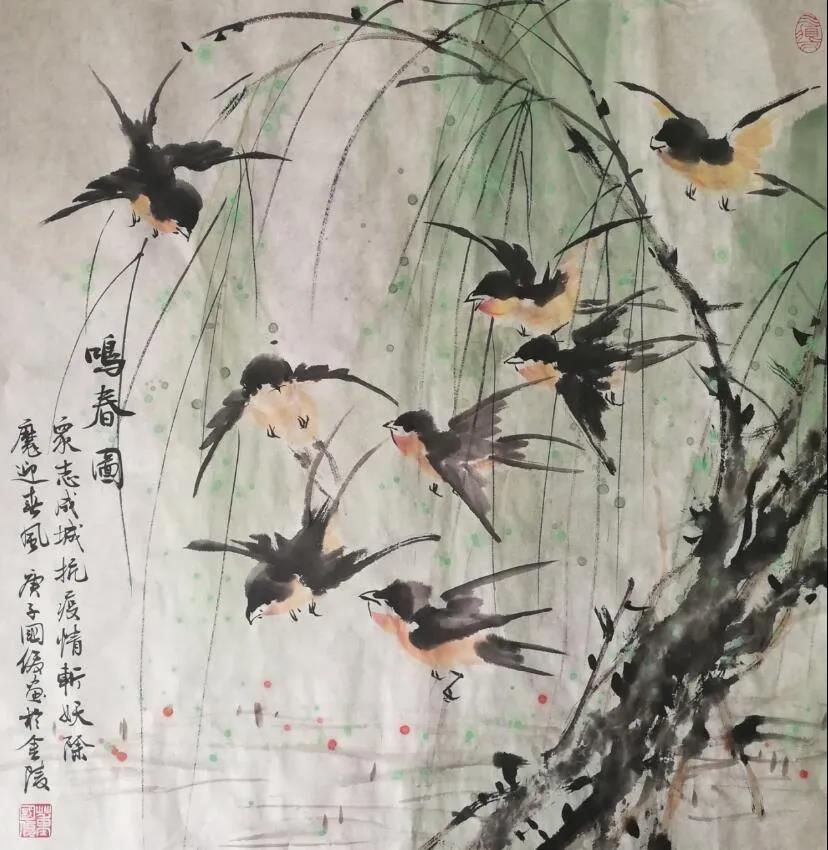 鳴春圖
眾志成城抗疫情斬妖除
魔迎春風 庚子國俊畫於金陵